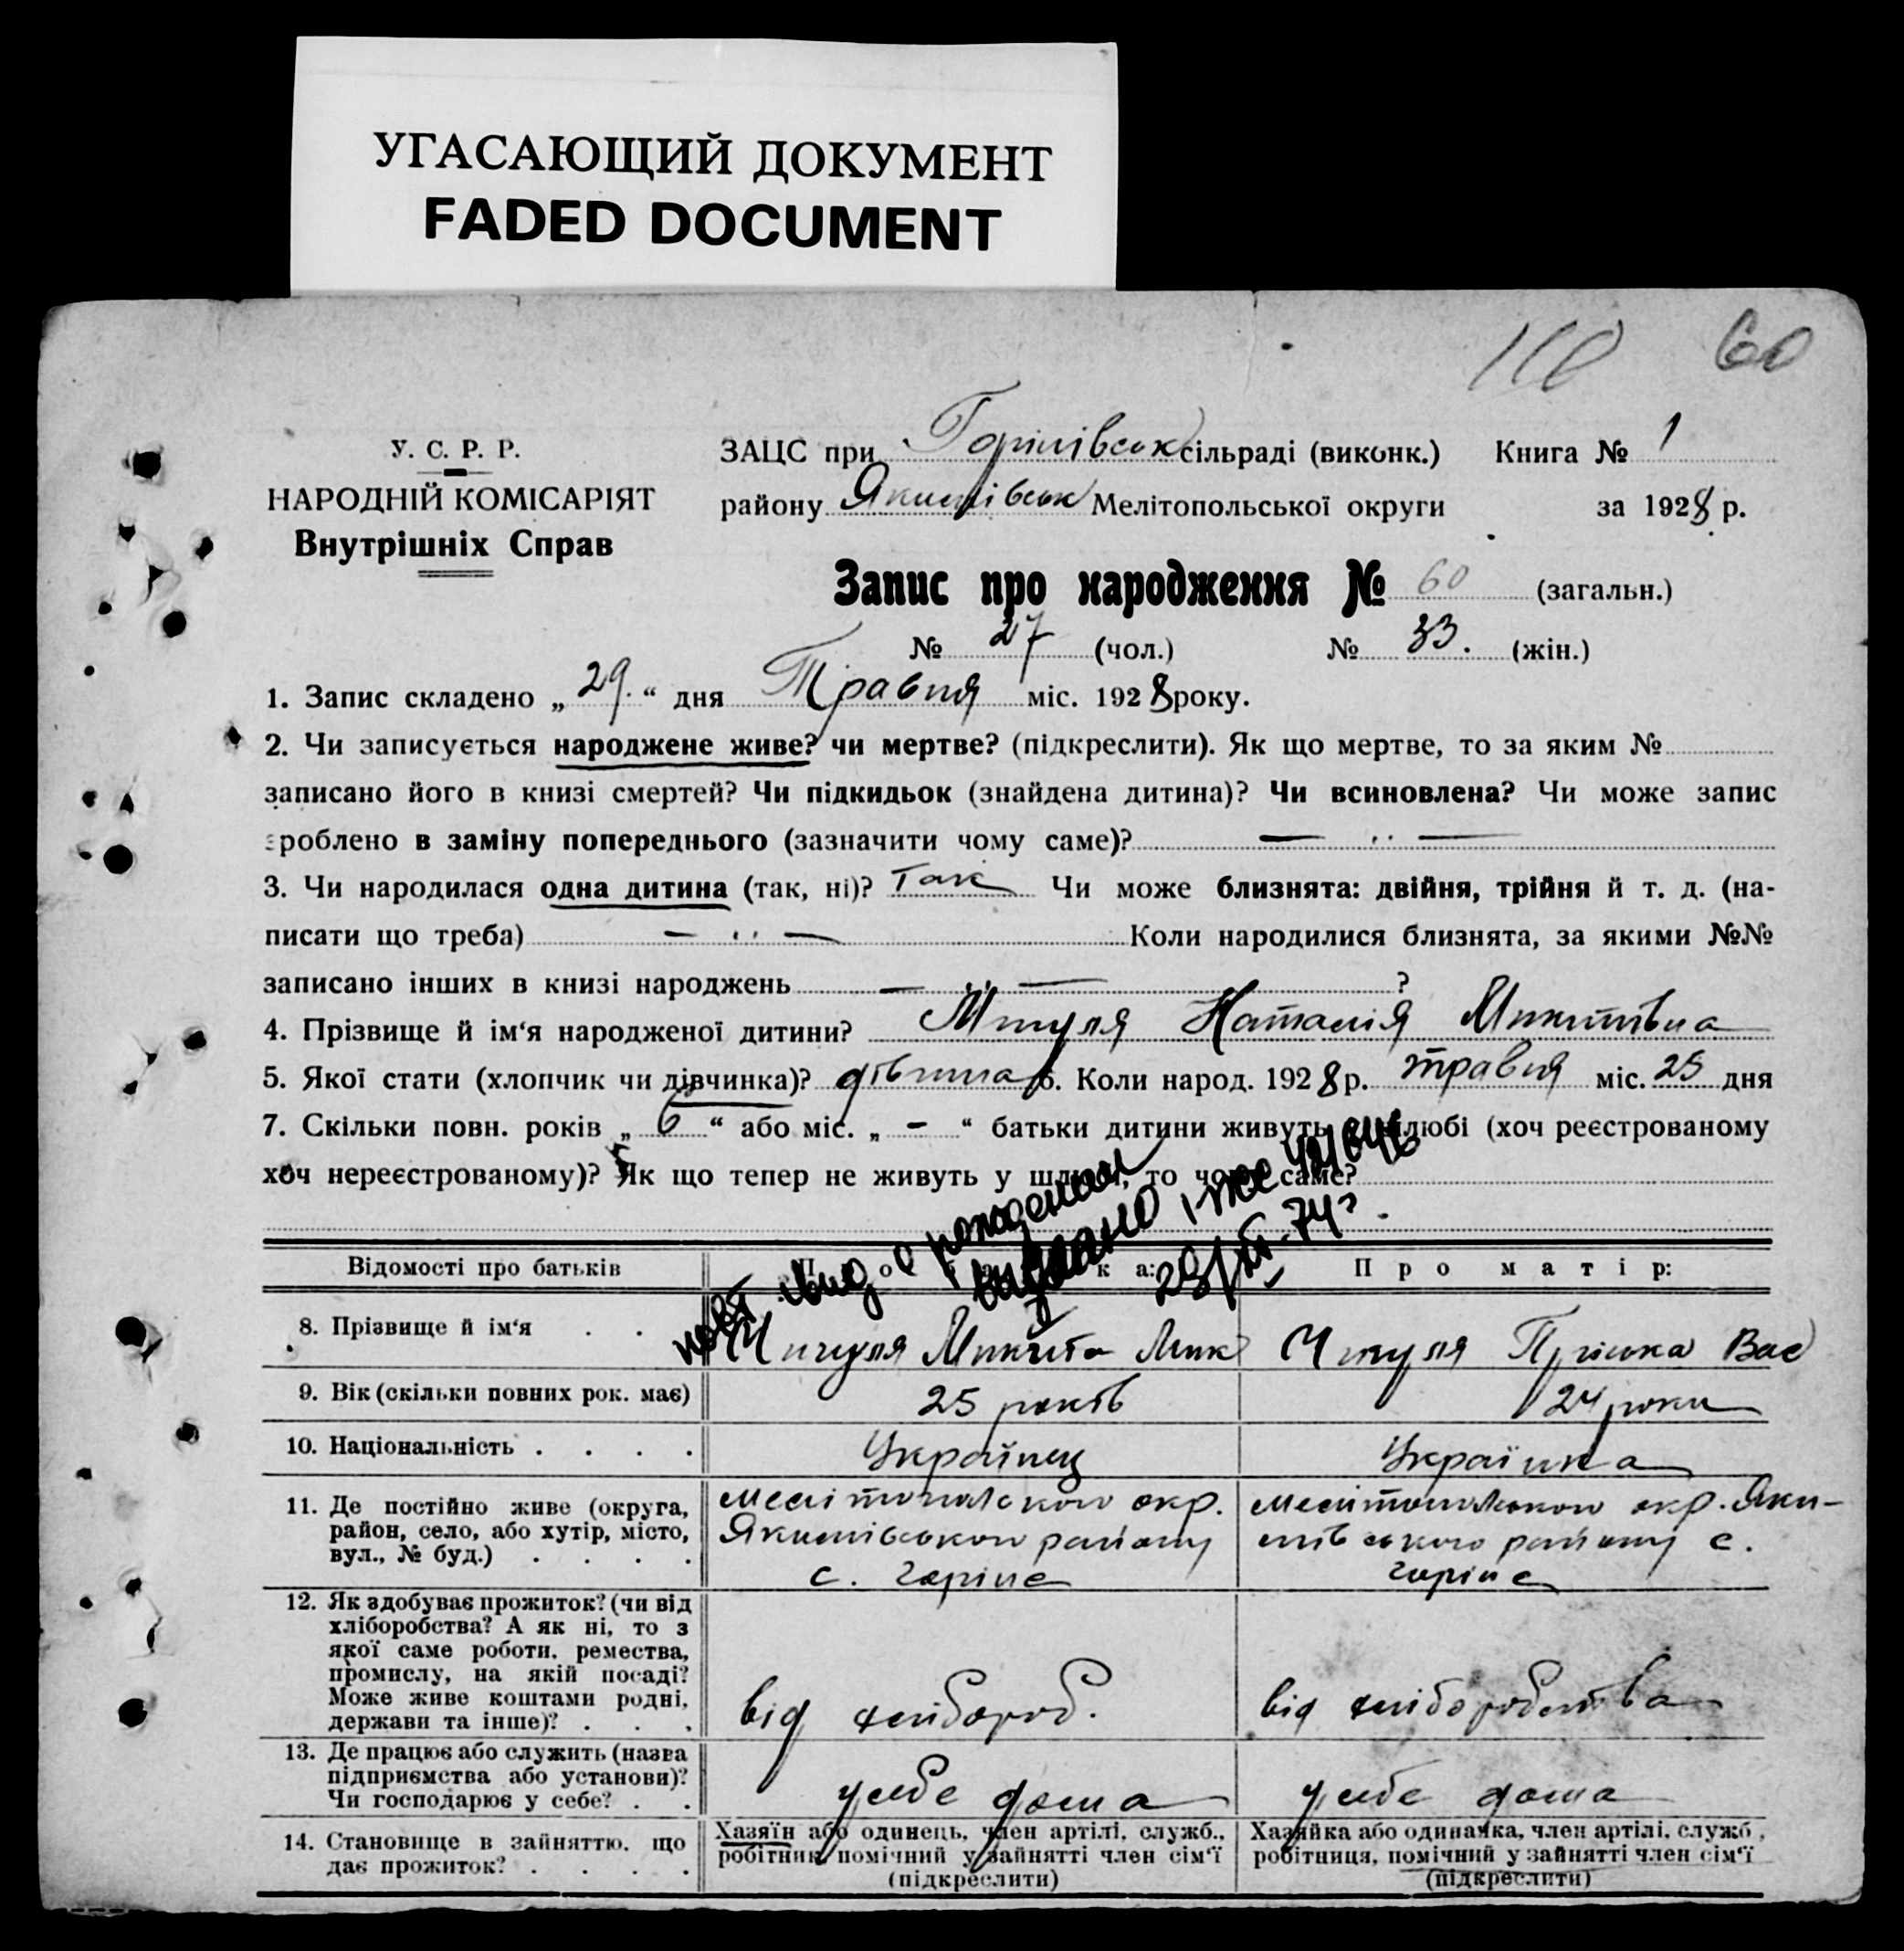 УГАСАЮЩИЙ ДОКУМЕНТ
FADED DOCUMENT
60
У. С. Р. Р.
НАРОДНІЙ КОМІСАРІЯТ
Внутрішніх Справ
ЗАЦС при Горілівськ сільраді (виконк.) Книга № 1
району Якимівськ Мелітопольської округи за 1928 р.
Запис про народження № 60 (загальн.)
№ 27 (чол.) № 33. (жін.)
1. Запис складено „ 29. “ дня Травня міс. 1928 року.
2. Чи записується народжене живе? чи мертве? (підкреслити). Як що мертве, то за яким №
записано його в книзі смертей? Чи підкидьок (знайдена дитина)? Чи всиновлена? Чи може запис
зроблено в заміну попереднього (зазначити чому саме)? — ·· —
3. Чи народилася одна дитина (так, ні)? так Чи може близнята: двійня, трійня й т. д. (на-
писати що треба) — ·· — Коли народилися близнята, за якими №№
записано інших в книзі народжень — ·· — ?
4. Прізвище й ім'я народженої дитини? Наталія Микитівна
5. Якої стати (хлопчик чи дівчинка)? дівчина 6. Коли народ. 1928 р. травня міс. 25 дня
7. Скільки повн. років „ 6 “ або міс. „ - “ батьки дитини живуть у шлюбі (хоч реєстрованому
хоч нереєстрованому)? Як що тепер не живуть у шлюбі, то чому саме?
о рождении
Відомості про батьків Про батька: Про матір:
8. Прізвище й ім'я . . Микита Мик Пріська Вас
9. Вік (скільки повних рок. має) 25 років 24 роки
10. Національність . . . . Українець Українка
11. Де постійно живе (округа, район, село, або хутір, місто, вул., № буд.) . . . .
Мелітопольского окр.
Якимівського району
с. Горіле
Мелітопольского окр. Яки-
мівського району с.
Горіле
12. Як здобуває прожиток? (чи від хліборобства? А як ні, то з якої саме роботи, ремества, промислу, на якій посаді? Може живе коштами родні, держави та інше)? . . .
від хлібороб. від хліборобства
13. Де працює або служить (назва підприємства або установи)? Чи господарює у себе? . .
у себе дома у себе дома
14. Становище в зайняттю, що дає прожиток? . . . .
Хазяїн або одинець, член артілі, служб., робітник, помічний у зайнятті член сім'ї (підкреслити)
Хазяйка або одиначка, член артілі, служб., робітниця, помічний у зайнятті член сім'ї (підкреслити)